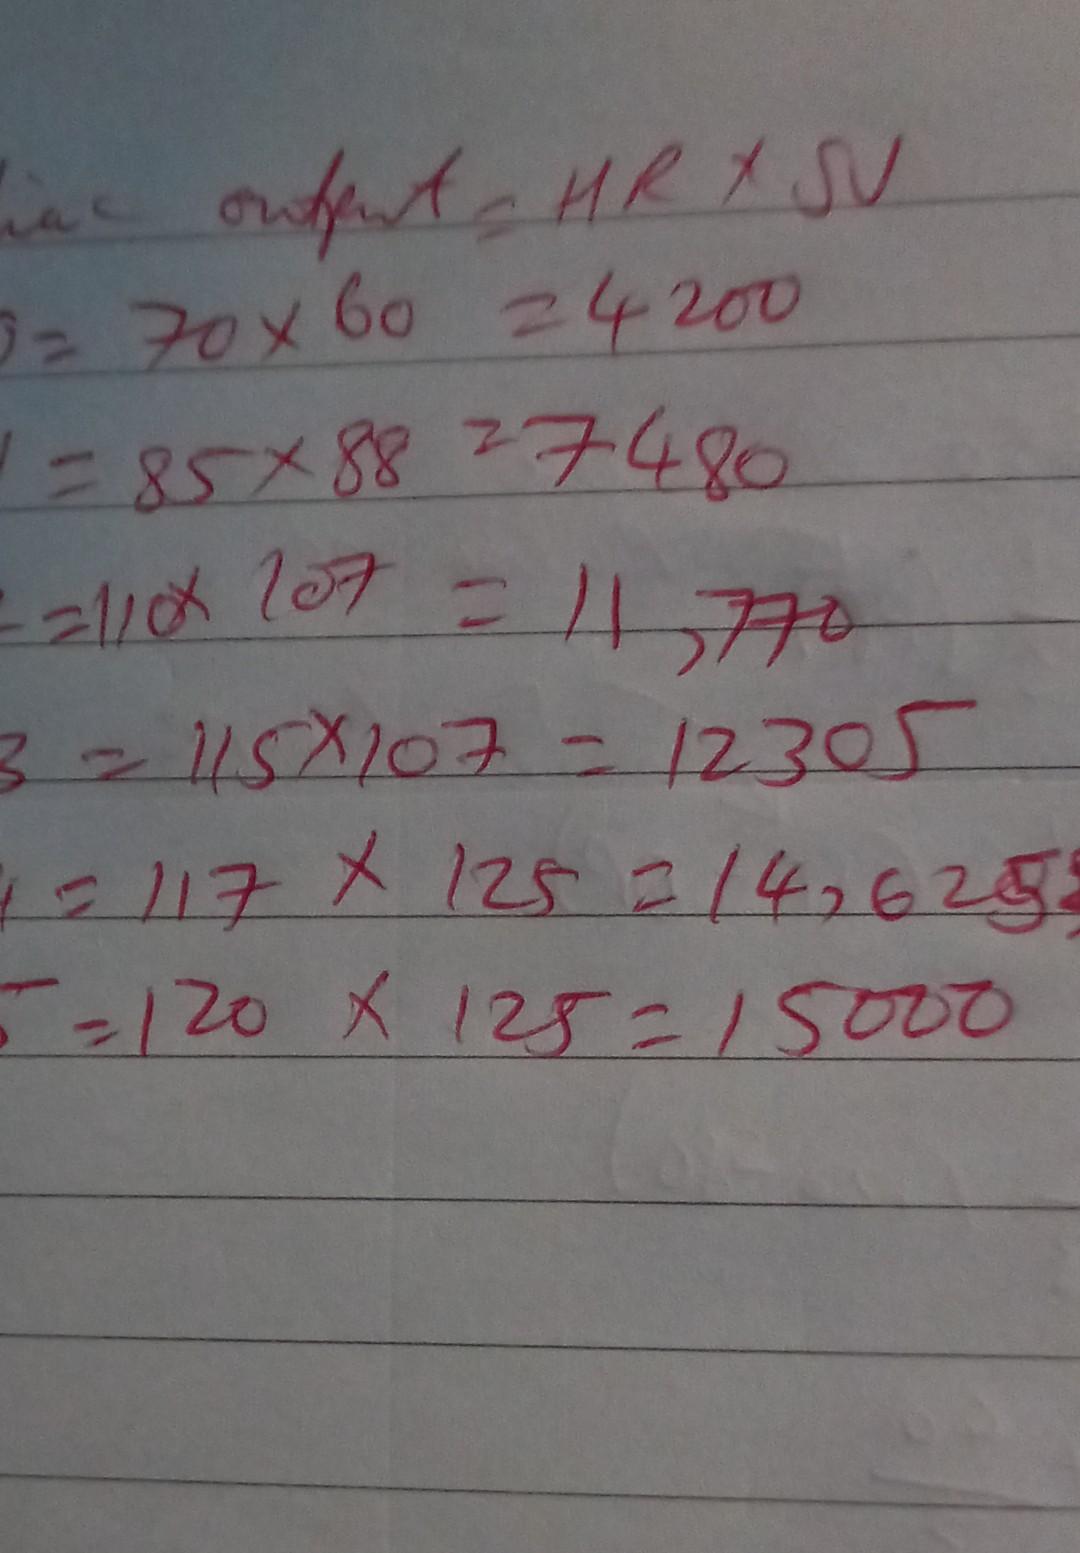 iac output = HR X SV
0 = 70 x 60 = 4200
1 = 85 x 88 = 7480
= 110 x 107 = 11,770
3 = 115 x 107 = 12305
4 = 117 x 125 = 14,625
5 = 120 x 125 = 15000